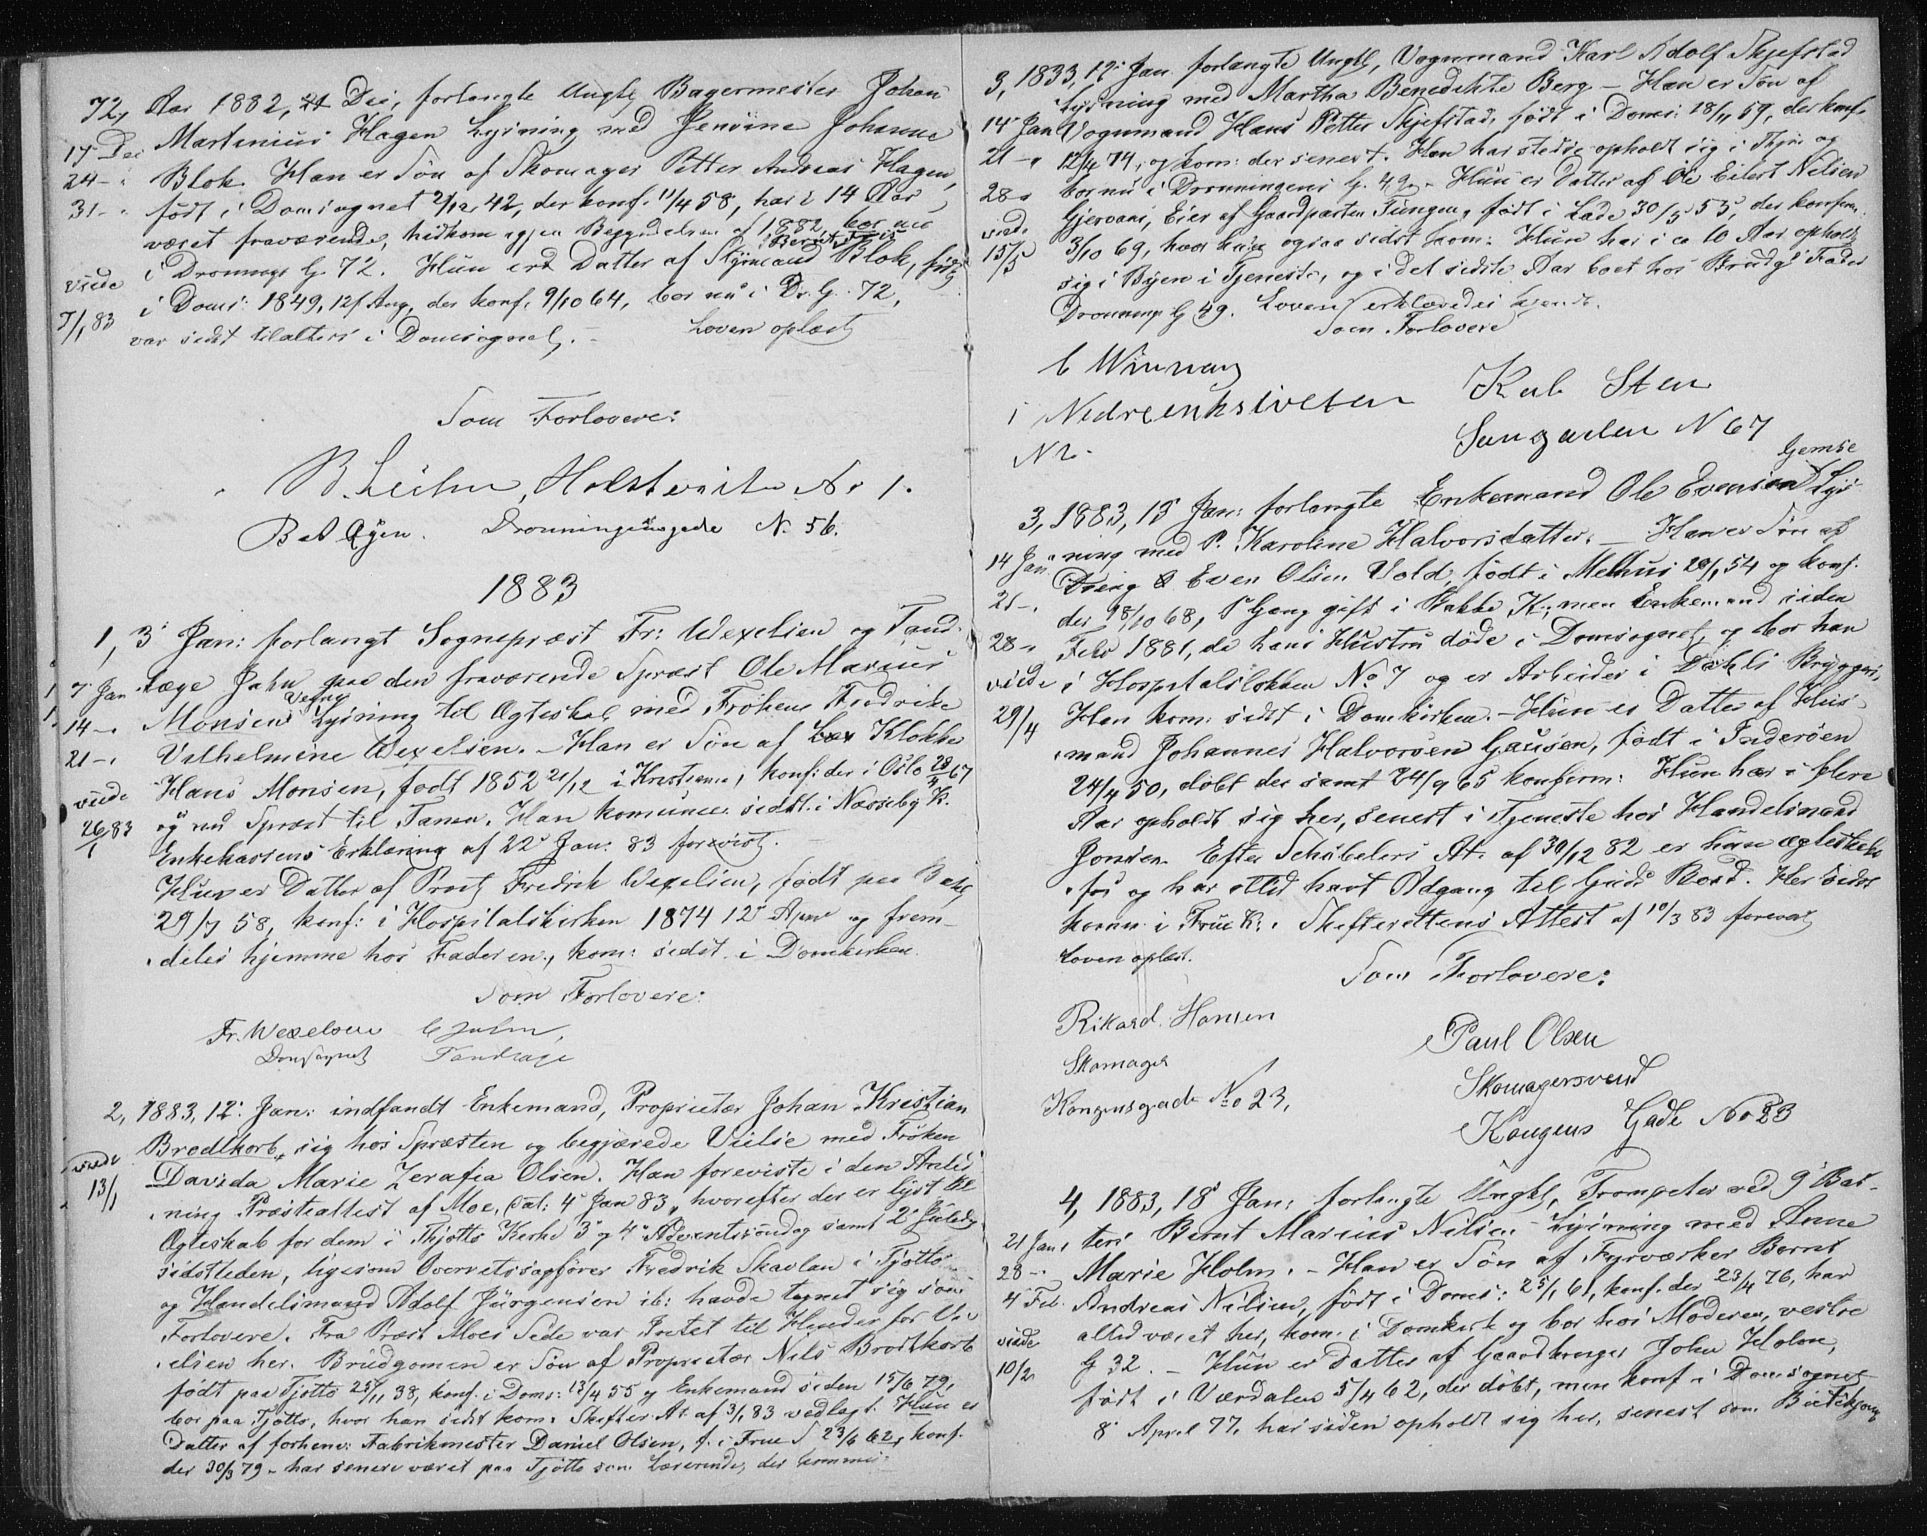 72, Aar 1882, 21 Dei, forlangte Ungk, Bagermester Johan
17 Dei Martinius Hagen Lysning med Jensine Johanne
24 - Blok. Han er Søn af Skomager Petter Andreas Hagen,
31 - født i Domsognet 2/12 42, der konf. 11/4 58, har i 14 Aar
været fraværende, hidkom igjen Begyndelsen af 1882, bor nu
viede i Dronnings G. 72. Hun er Datter af Styrmand Blok, født
7/1 83 i Doms: 1849, 12 Aug, der konf. 9/10 64, bor nu i Dr. G. 72,
var sidst tilalters i Domsognet. Loven oplæst
Som Forlovere:
Holstveita No 1.
Dronningensgade N. 56.
1883
1, 3 Jan: forlangt Sognepræst Fr: Wexelsen og Tand-
7 Jan læge Jahn paa den fraværende Spræst Ole Marius
14 - Monsens Vegne Lysning til Ægteskab med Frøken Fredrike
21 - Vilhelmine Wexelsen. - Han er Søn af Klokker
viede Hans Monsen, født 1852 21/12 i Kristiania, konf: der i Oslo 28/4 67
26/1 83 og nu Spræst til Tanen. Han komunic. sidst i Næsseby K.
Enkekassens Erklæring af 22 Jan: 83 forevist.
Hun er Datter af Provst Fredrik Wexelsen, født paa
29/7 58, konf: i Hospitalskirken 1874 12 April og frem-
deles hjemme hos Faderen, kom: sidst i Domkirken.
Som Forlovere:
Fr. Wexelsen C Jahn,
Domsognet Tandlæge
2, 1883, 12 Jan: indfandt Enkemand, Proprietær Johan Kristian
Brodtkorb, sig hos Spræsten og begjærede Vielse med Frøken
viede Davida Marie Zerafia Olsen. Han foreviste i den Anled-
13/1 ning Præsteattest af Moe, dat: 4 Jan 83, hvorefter der er lyst til
Ægteskab for dem i Thjøttø Kirke 3 og 4 Adventssøndag samt 2 Juledag
sidstleden, ligesom Overretssagfører Fredrik Skavlan i Tjøttø
og Handelsmand Adolf Jürgensen ib: havde tegnet sig som
Forlovere. Fra Præst Moes Side var Intet til Hinder for Vi-
elsen her. Brudgomen er Søn af Proprietær Nils Brodtkorb
født paa Tjøttø 25/11 38, konf. i Doms: 13/4 55 og Enkemand siden 15/6 79,
bor paa Tjøttø, hvor han sidst kom. Skifter-At. af 3/1 83 vedlagt. Hun er
Datter af forhenv: Fabrikmester Daniel Olsen, f. i Frue S 23/6 62, konf.
der 30/3 79 - har senere været paa Tjøttø som Lærerinde,
3, 1833, 12 Jan. forlangte Ungk, Vognmand Karl Adolf Skjefstad
Lysning med Martha Benedikte Berg - Han er Søn af
14 Jan Vognmand Hans Petter Skjefstad, født i Doms: 18/11 59, der konf.
21 - 12/4 74, og kom: der senest. Han har stedse opholdt sig i Byen og
28 - bor nu i Dronningens G. 49 - Hun er Datter af Ole Eilert Nilsen
viede Gjervan, Eier af Gaardparten Tungen, født i Lade 30/5 53, der konfirm.
15/5 3/10 69, hvor hun ogsaa sidst kom: Hun har i ca 10 Aar opholdt
sig i Byen i Tjeneste, og i det sidste Aar boet hos Brudg Fader
Dronnings G 49. Loven erklæredes kjendt.
Som Forlovere
C Winnan
i Nedre
N 2.
Sten
Sangarlen N 67
Gemse
3, 1883, 13 Jan: forlangte Enkemand Ole Evensen Lys-
14 Jan ning med P. Karoline Halvorsdatter. - Han er Søn af
Even Olsen Vold, født i Melhus 28/1 54 og konf.
21 - der 18/10 68, 1 Gang gift i Bakke K., men Enkemand siden
28 - Febr 1881, da hans Hustru døde i Domsognet, og bor han
viede i Hospitalsløkken No 7 og er Arbeider i Dahls Bryggeri,
29/4 Han kom: sidst i Domkirken. - Hun er Datter af Hus-
mand Johannes Halvorsen Gausen, født i Inderøen
24/4 50, døbt der samt 24/9 65 konfirm: Hun har i flere
Aar opholdt sig her, senest i Tjeneste hos Handelsmand
Jonsen. Efter Schübelers At. af 30/12 82 er hun ægteskabs-
før og har altid havt Adgang til Guds Bord. Her sidst
komn i Frue K. Skifterettens Attest af 10/3 83 forevist
Loven oplæst.
Som Forlovere:
Rikard Hansen
Skomager
Kongensgade No 23,
Paul Olsen
Skomagersvend
Kongens Gade No 23
4, 1883, 18 Jan: forlangte Ungk, Trompeter ved 9 Bat-
21 Jan teri Bernt Marius Nilsen Lysning med Anne
28 - Marie Holm. - Han er Søn af Fyrværker Bernt
4 Feb. Andreas Nilsen, født i Doms: 25/1 61, konf. der 23/4 76, har
altid været her, kom: i Domkirk og bor hos Moderen, vestre
viede G 32. - Hun er Datter af Gaardbruger John Holm,
10/2 født i Værdalen 5/4 62, der døbt, men konf i Domsognet
8 April 77, har siden opholdt sig her, senest som